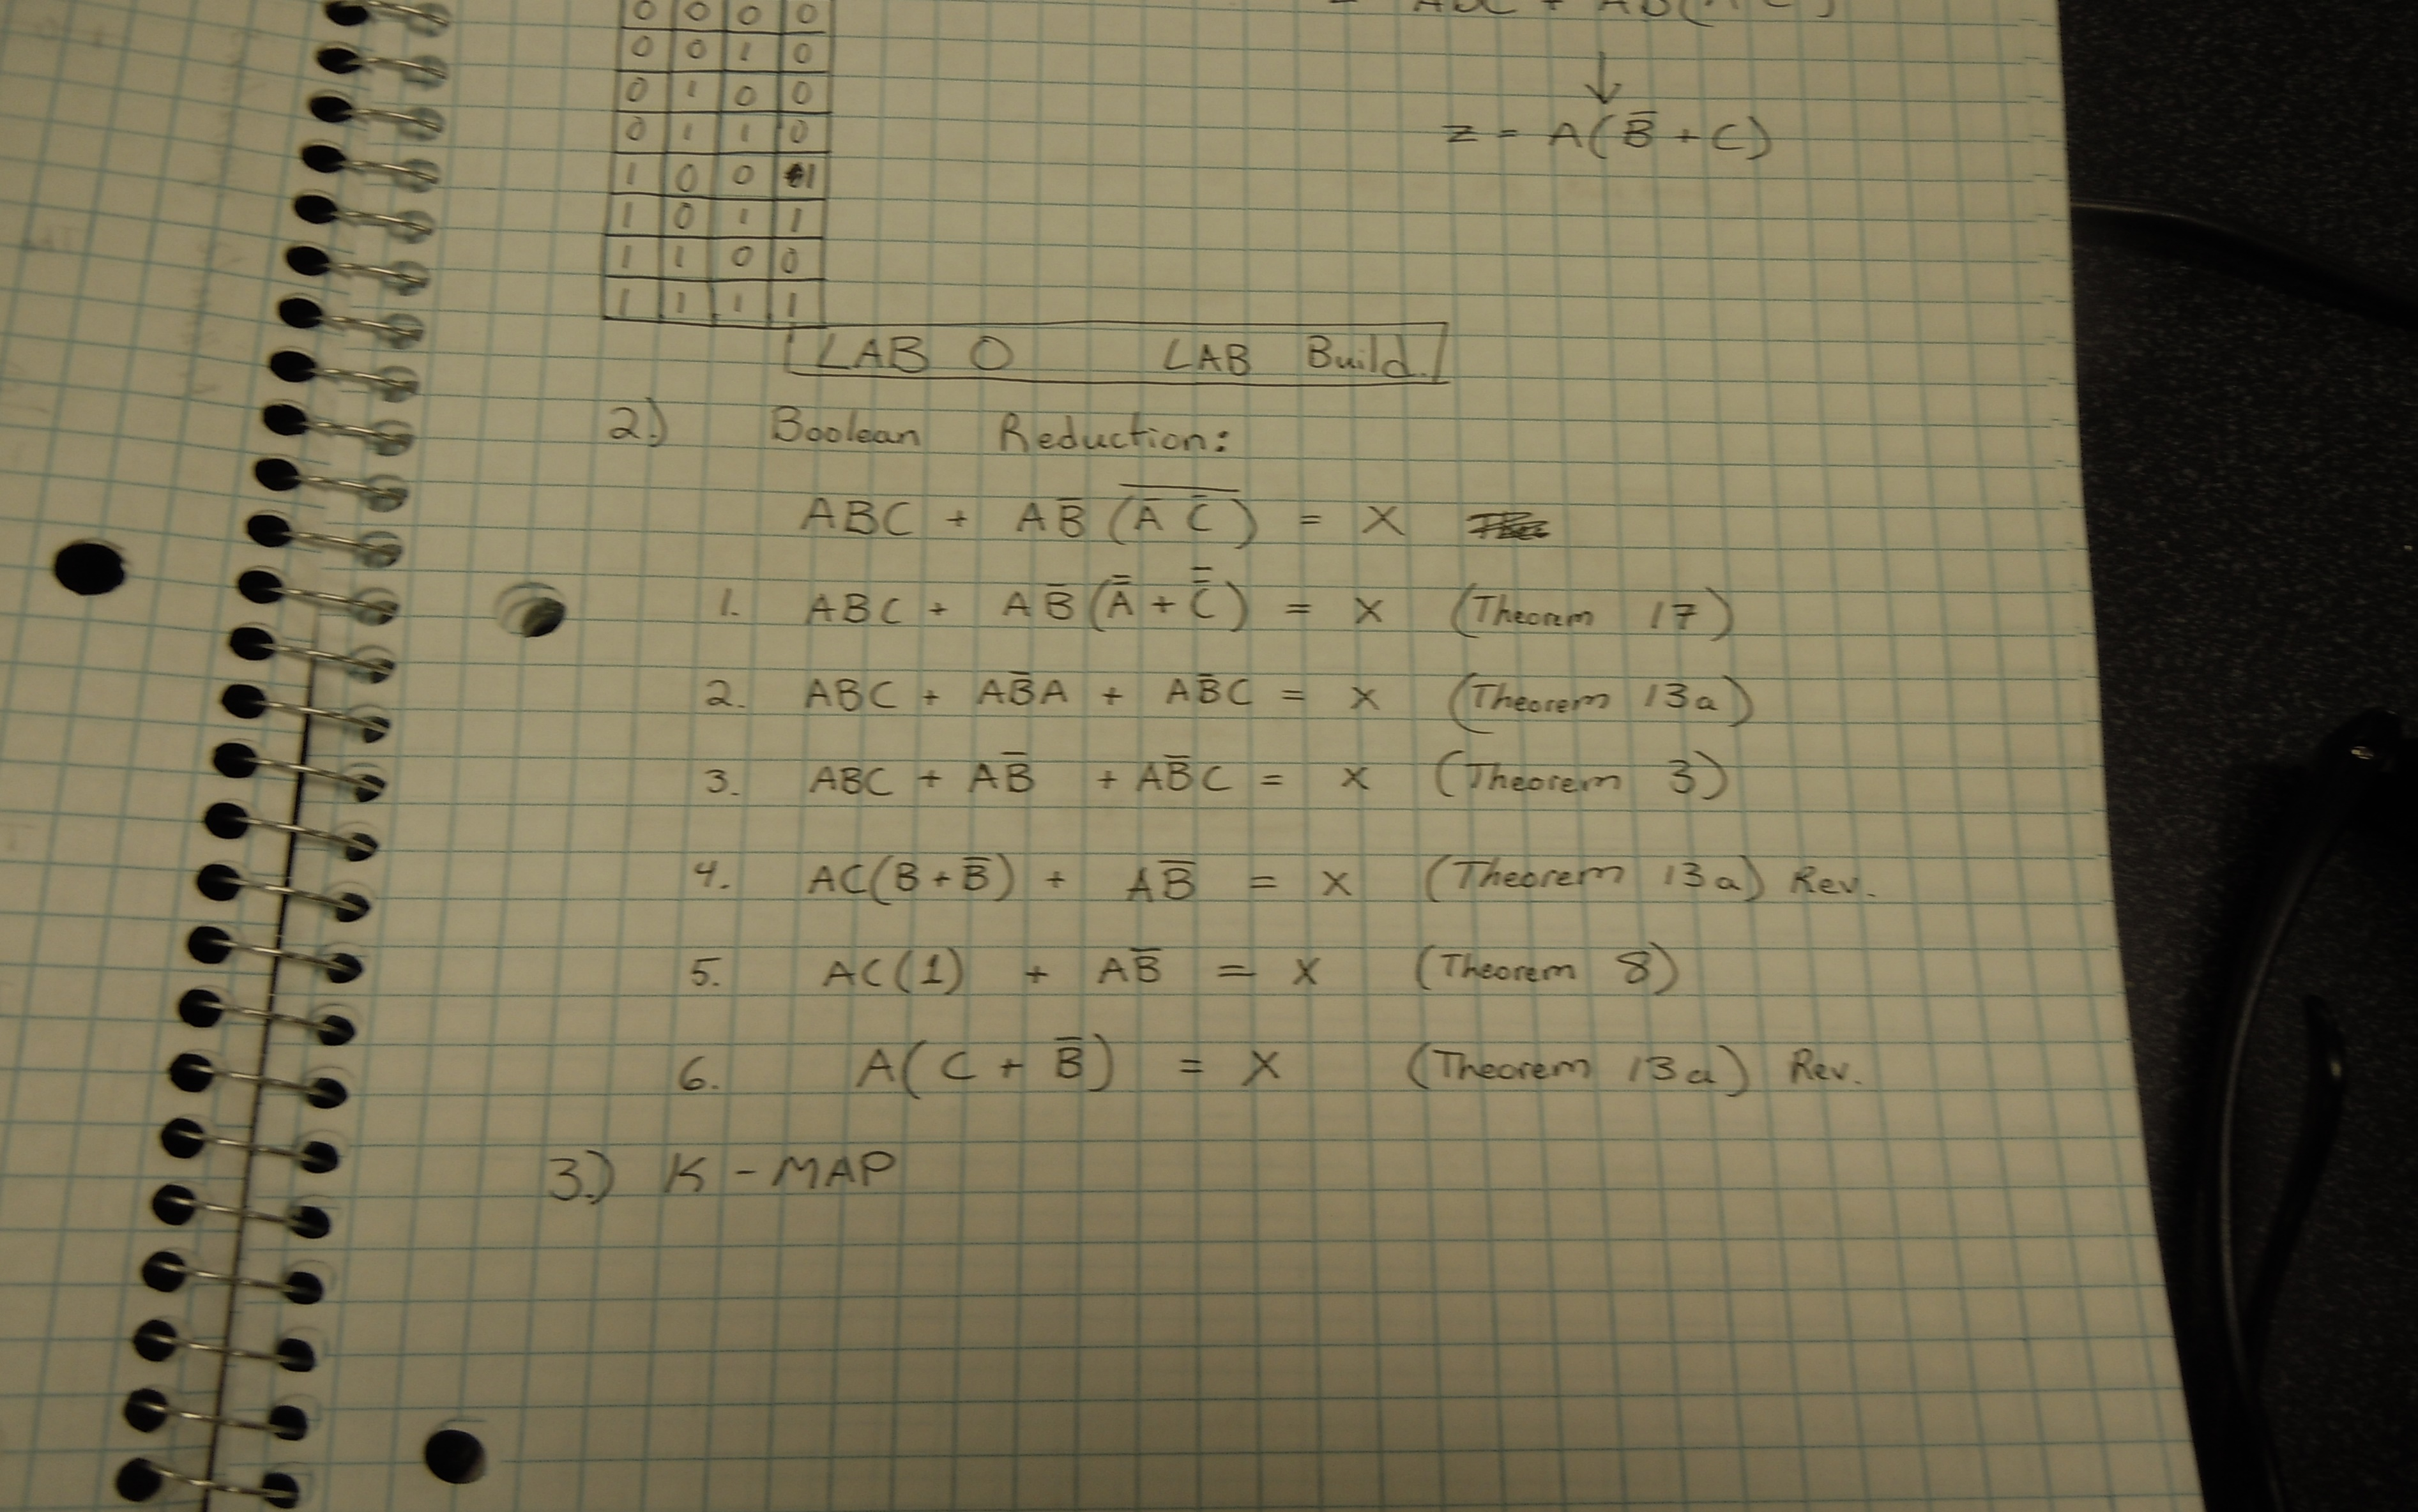 0 0 0 0
0 0 1 0
0 1 0 0
0 1 1 0
1 0 0 1
1 0 1 1
1 1 0 0
1 1 1 1
Z = A(B̅ + C)
LAB 0 LAB Build.
2.) Boolean Reduction:
ABC + AB̅ (\overline{A̅ C̅}) = X
1. ABC + AB̅(A̿ + C̿) = X (Theorem 17)
2. ABC + AB̅A + AB̅C = X (Theorem 13a)
3. ABC + AB̅ + AB̅C = X (Theorem 3)
4. AC(B+B̅) + AB̅ = X (Theorem 13a) Rev.
5. AC(1) + AB̅ = X (Theorem 8)
6. A(C + B̅) = X (Theorem 13a) Rev.
3.) K-MAP